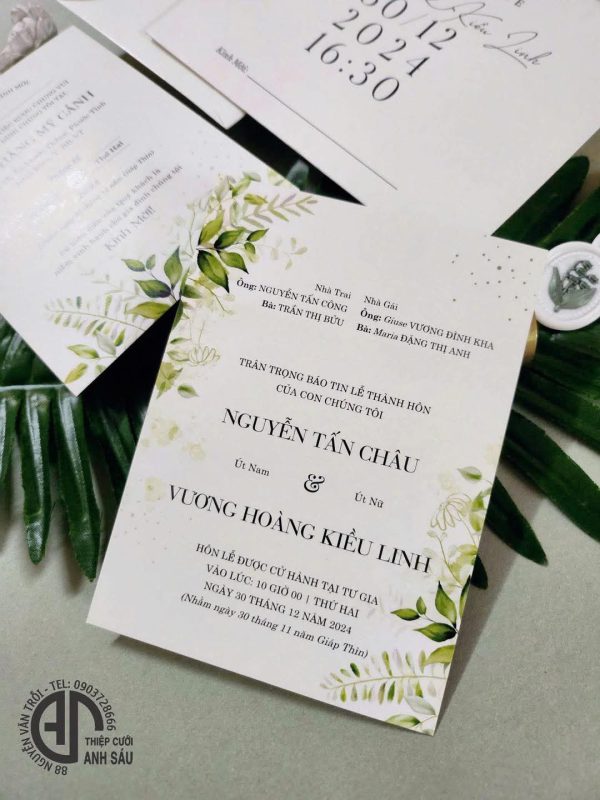 Kiều Linh
30/12
2024
16:30
Kính Mời:
HOÀNG MỸ CẢNH
Thứ Hai
Kính Mời!
Nhà Trai
Ông: NGUYỄN TẤN CÔNG
Bà: TRẦN THỊ BỬU
Nhà Gái
Ông: Giuse VƯƠNG ĐÌNH KHA
Bà: Maria ĐẶNG THỊ ANH
TRÂN TRỌNG BÁO TIN LỄ THÀNH HÔN
CỦA CON CHÚNG TÔI
NGUYỄN TẤN CHÂU
Út Nam
&
Út Nữ
VƯƠNG HOÀNG KIỀU LINH
HÔN LỄ ĐƯỢC CỬ HÀNH TẠI TƯ GIA
VÀO LÚC: 10 GIỜ 00 | THỨ HAI
NGÀY 30 THÁNG 12 NĂM 2024
(Nhằm ngày 30 tháng 11 năm Giáp Thìn)
88 NGUYỄN VĂN TRỖI - TEL: 0903728666
THIỆP CƯỚI
ANH SÁU